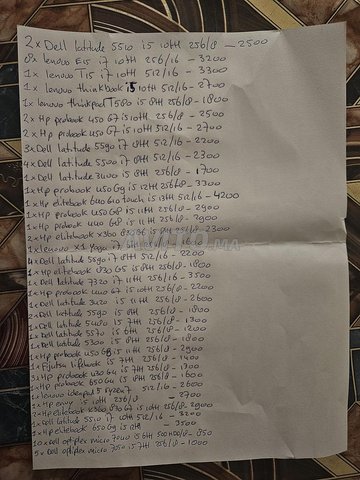 2x Dell latitude 5510 i5 10th 256/8 - 2500
8x lenovo E15 i7 10th 256/16 - 3200
1x lenovo T15 i7 10th 512/16 - 3300
1x lenovo thinkbook i5 10th 512/16 - 2700
1x lenovo thinkpad T580 i5 8th 256/8 - 1800
2x Hp probook 450 G7 i5 10th 256/8 - 2500
2x Hp probook 450 G7 i5 10th 512/16 - 2700
3x Dell latitude 5590 i7 8th 512/16 - 2200
4x Dell latitude 5500 i7 8th 512/16 - 2300
1x Dell latitude 3400 i5 8th 256/8 - 1700
1x Hp probook 450 G9 i5 12th 256/8 - 3300
1x Hp elitebook 640 G10 touch i5 13th 512/16 - 4200
1x Hp probook 450 G8 i5 11th 256/8 - 2900
1x Hp probook 440 G8 i5 11th 256/8 - 2900
2x Hp elitebook x360 830 G6 i5 8th 256/8 - 2300
1x lenovo x1 yoga i7
Dell latitude 5590 i7 8th 512/16 - 2200
1x Hp elitebook 830 G5 i5 8th 256/8 - 1800
1x Dell latitude 7320 i7 11th 256/16 - 3500
1x Hp probook 440 G7 i5 10th 256/8 - 2200
1x Dell latitude 3420 i5 11th 256/8 - 2600
2x Dell latitude 5590 i5 8th 256/8 - 1800
1x Dell latitude 5480 i5 7th 256/8 - 1300
1x Dell latitude 5570 i5 6th 256/8 - 1200
1x Dell latitude 5300 i5 8th 256/8 - 1800
Hp probook 450 G8 i5 11th 256/8 - 2900
1x Fujitsu lifebook i5 7th 256/8 - 1400
3x Hp probook 430 G4 i5 7th 256/8 - 1300
Hp probook 650 G4 i5 8th 256/8 - 1600
1x lenovo ideapad 5 ryzen 7 512/16 - 2600
Hp envy i5 10th 256/8 - 2700
Hp elitebook x360 830 G7 i5 10th 256/8 - 2900
Dell latitude 5510 i7 10th 512/16 - 3200
Hp elitebook 650 G9 i5 - 3500
10x Dell optiplex micro 7040 i5 6th 500HDD/8 - 850
5x Dell optiplex micro 7050 i5 7th 256/8 - 1000